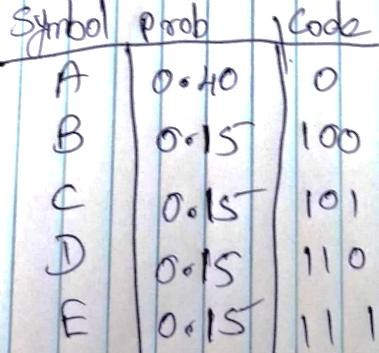 Symbol Prob Code
A 0.40 0
B 0.15 100
C 0.15 101
D 0.15 110
E 0.15 111